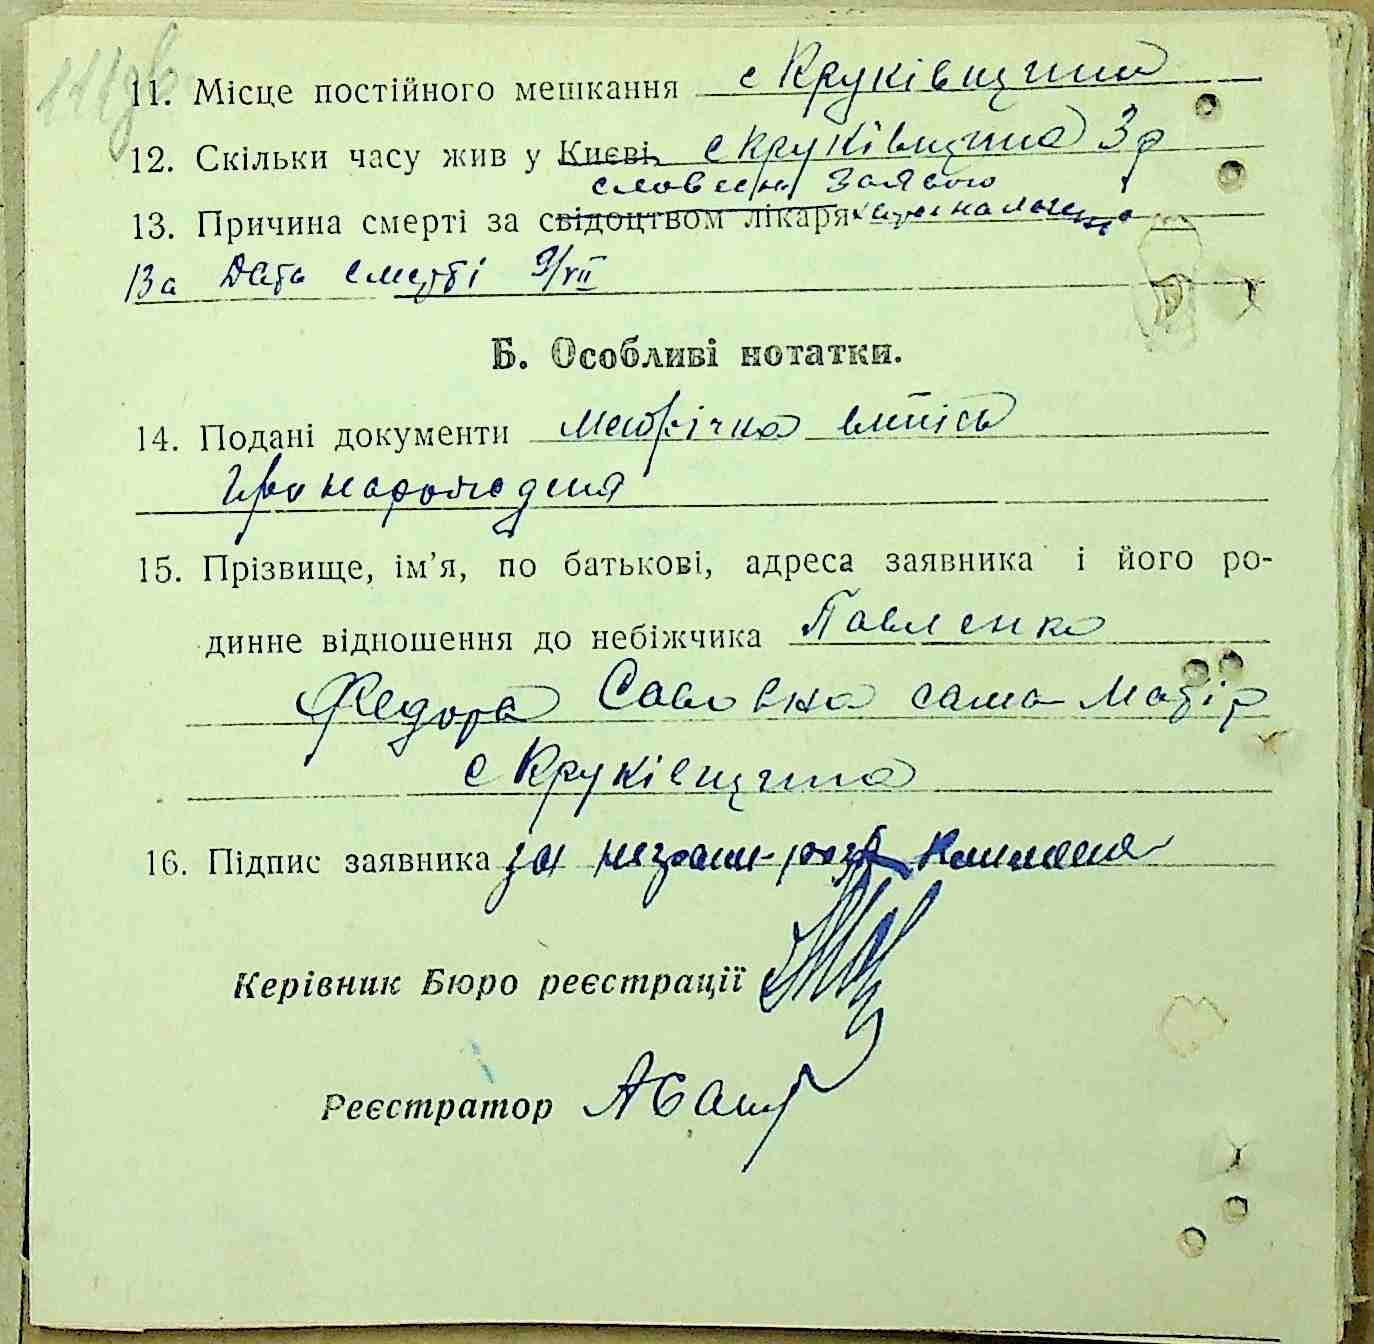 11. Місце постійного мешкання с Круківщина
12. Скільки часу жив у Києві с Круківщина 3 р
словесн заявою
13. Причина смерті за свідоцтвом лікаря
13а Дата смерті 9/VII
Б. Особливі нотатки.
14. Подані документи метрічна випись
про народження
15. Прізвище, ім’я, по батькові, адреса заявника і його ро-
динне відношення до небіжчика Павленко
Федора Савовна сама матір
с Круківщина
16. Підпис заявника за неграм-
Керівник Бюро реєстрації
Реєстратор